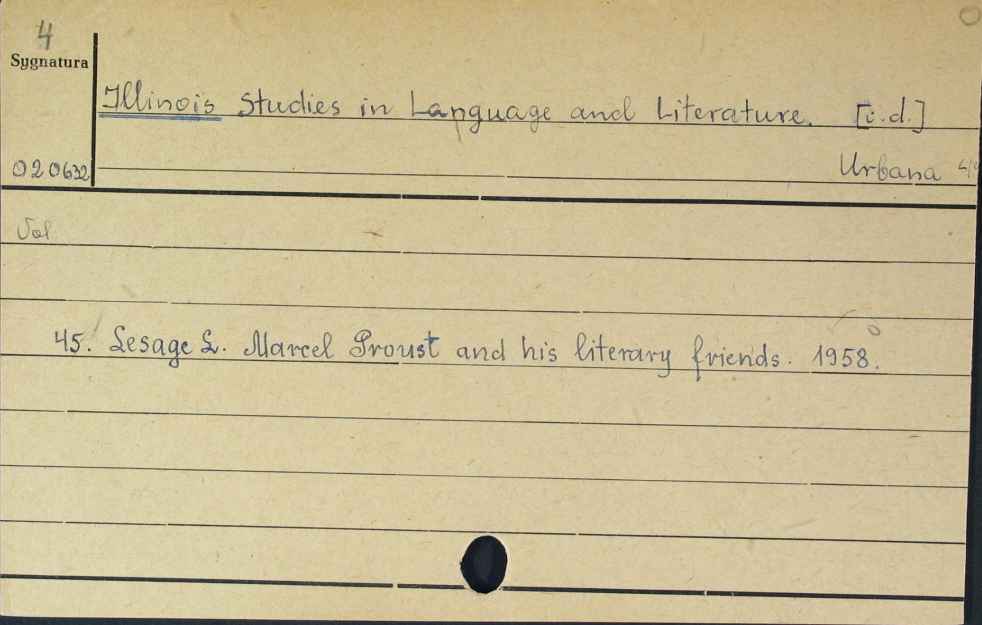 4
Sygnatura
Illinois Studies in Language and Literature. [c.d.]
020632
Urbana
Vol
45. Lesage L. Marcel Proust and his literary friends. 1958.